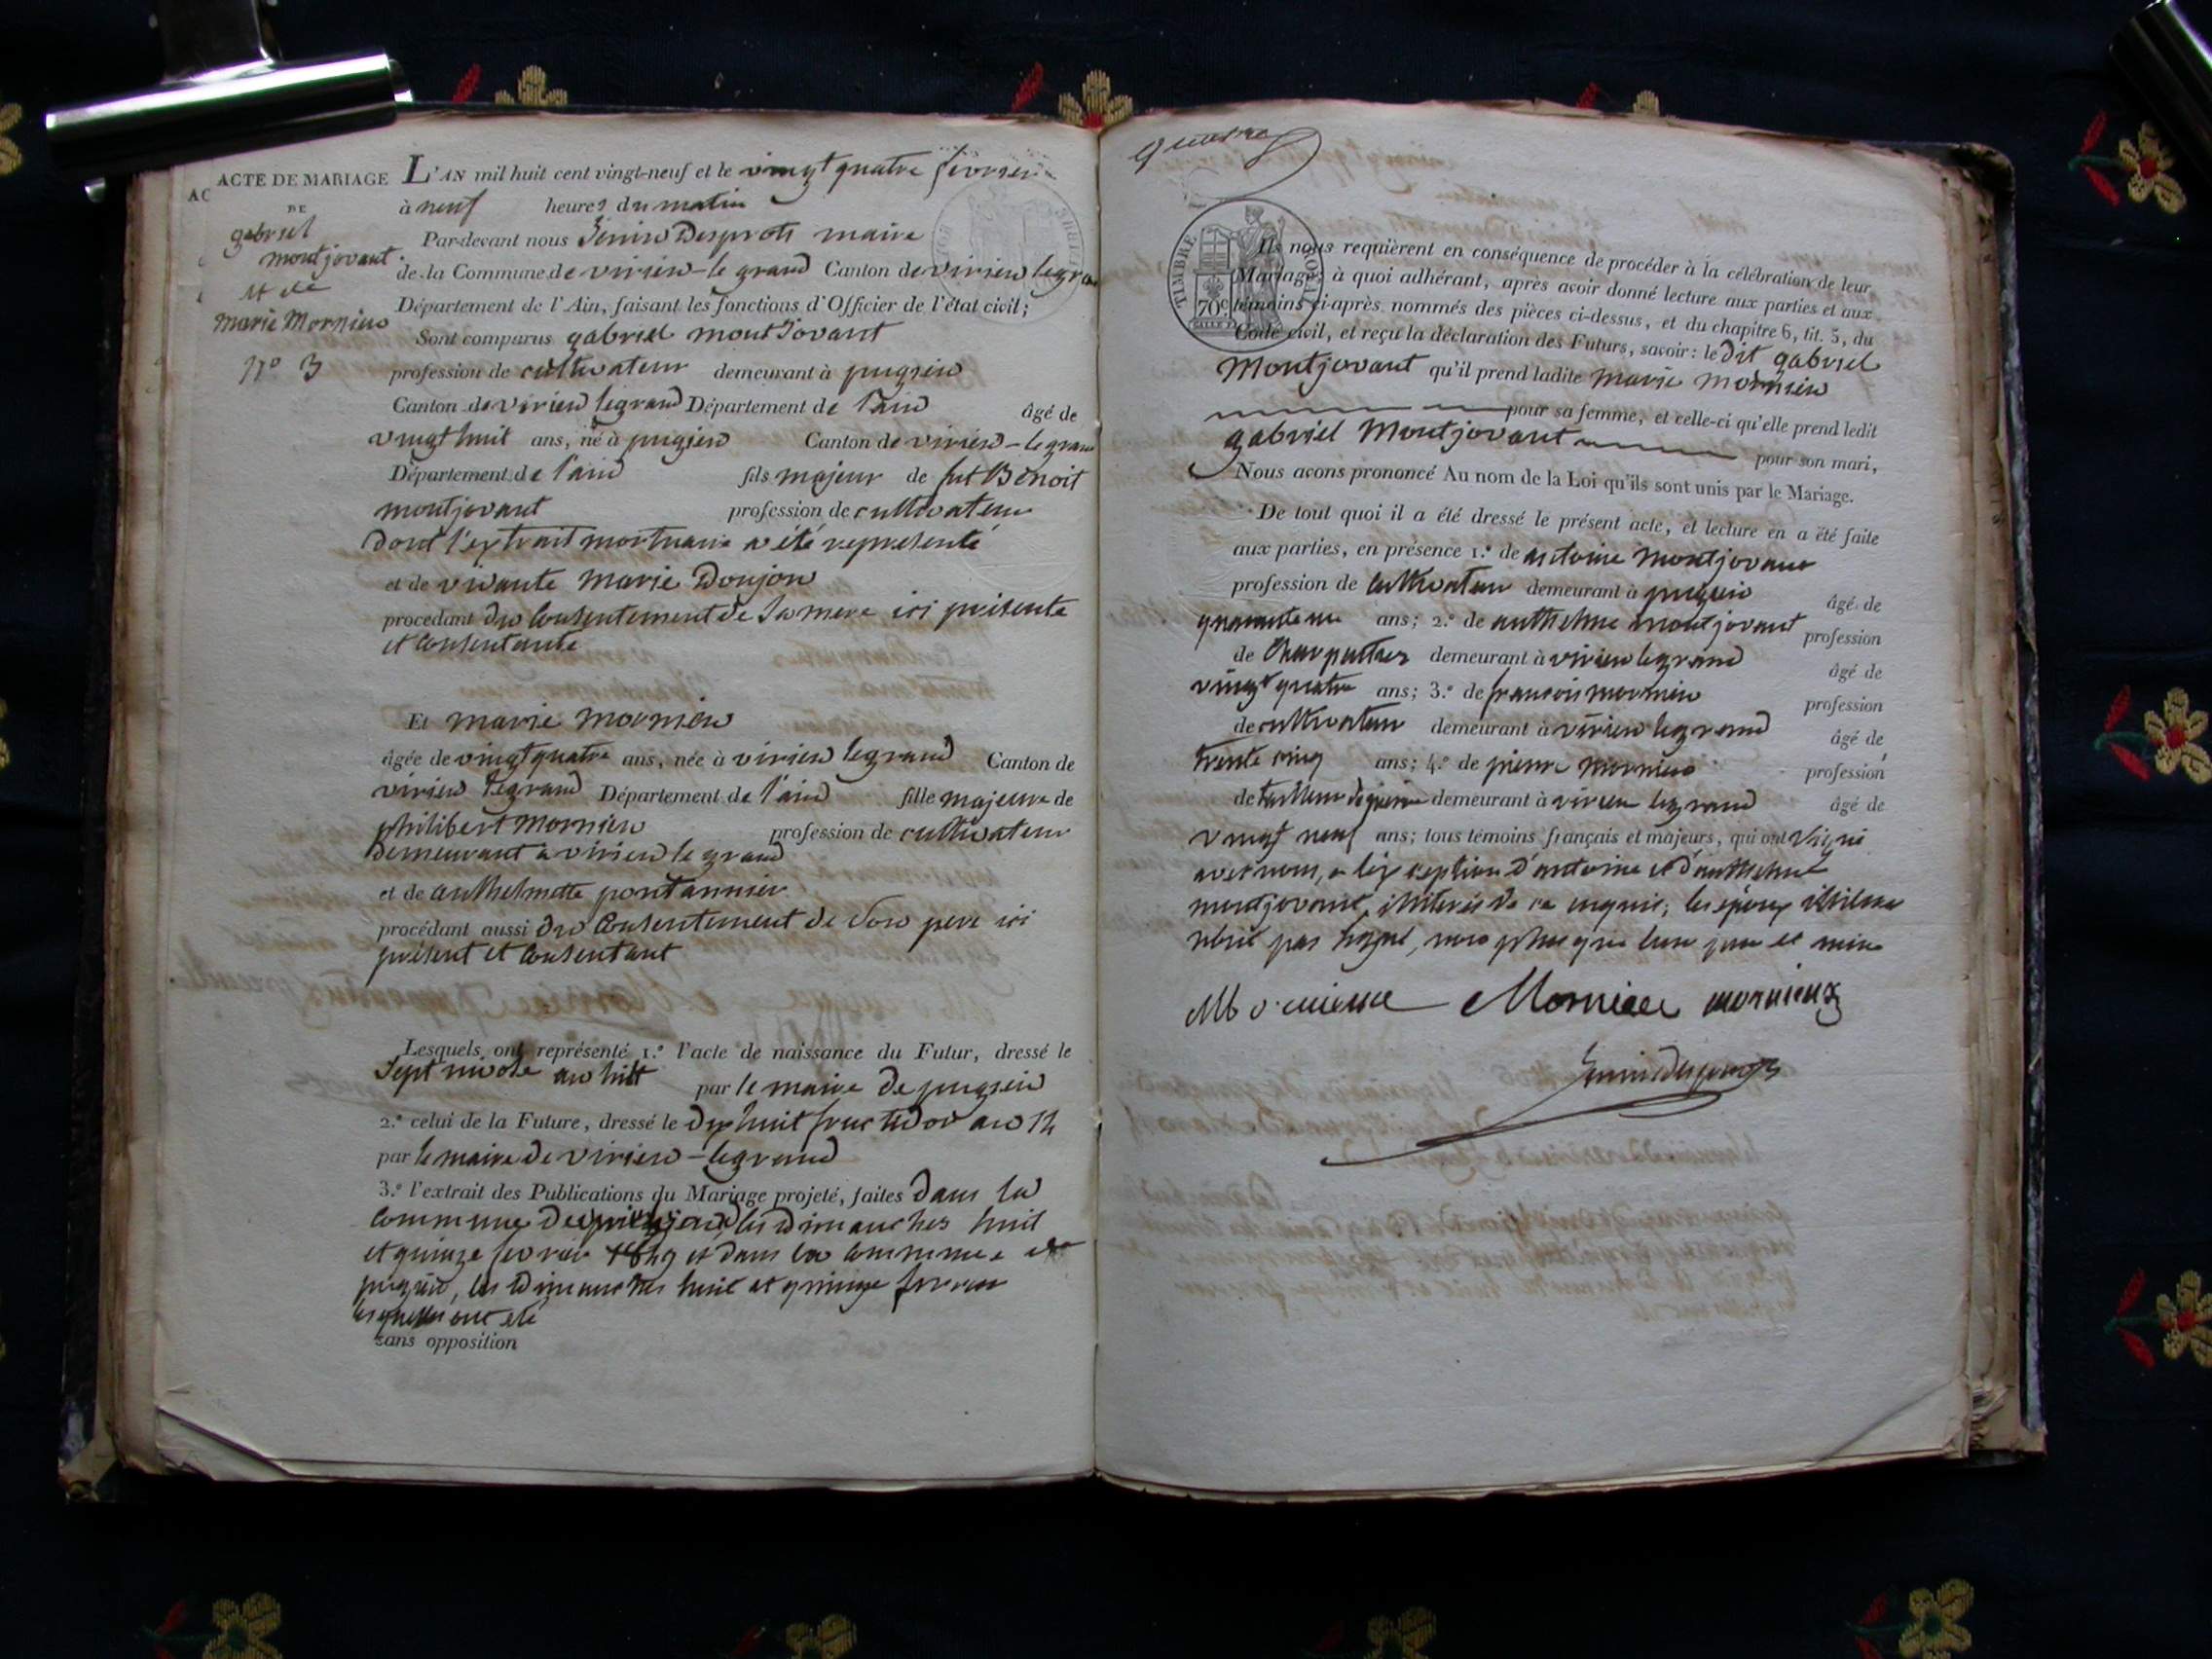 ACTE DE MARIAGE
DE
gabriel
montjovant
et de
marie Mornieu
N° 3
L'AN mil huit cent vingt-neuf et le vingt quatre fevrier
à neuf heures du matin
Par-devant nous maire
de la Commune de virieu-le grand Canton de virieu legrand
Département de l'Ain, faisant les fonctions d'Officier de l'état civil;
Sont comparus gabriel montjovant
profession de cultivateur demeurant à pugieu
Canton de virieu legrand Département de l'ain âgé de
vingt huit ans, né à pugieu Canton de virieu-legrand
Département de l'ain fils majeur de fut Benoit
montjovant profession de cultivateur
dont l'extrait mortuaire a été representé
et de vivante marie Donjon
procedant du Consentement de sa mere ici présente
et Consentante
Et marie mornieu
âgée de vingt quatre ans, née à virieu legrand Canton de
virieu legrand Département de l'ain fille majeure de
philibert mornieu profession de cultivateur
demeurant a virieu le grand
et de anthelmette pontannier
procédant aussi du Consentement de son pere ici
présent et Consentant
Lesquels ont représenté 1.° l'acte de naissance du Futur, dressé le
Sept nivose an huit par le maire de pugieu
2.° celui de la Future, dressé le dix huit fructidor an 12
par le maire de virieu-legrand
3.° l'extrait des Publications du Mariage projeté, faites dans la
Commune de les dimanches huit
et quinze fevrier 1829 et dans la Commune de
pugieu, les dimanches huit et quinze fevrier
lesquelles ont été
sans opposition
TIMBRE ROYAL
70c
Ils nous requièrent en conséquence de procéder à la célébration de leur
Mariage; à quoi adhérant, après avoir donné lecture aux parties et aux
témoins ci-après nommés des pièces ci-dessus, et du chapitre 6, tit. 5, du
Code civil, et reçu la déclaration des Futurs, savoir: le dit gabriel
Montjovant qu'il prend ladite marie mornieu
pour sa femme, et celle-ci qu'elle prend ledit
gabriel Montjovant pour son mari,
Nous avons prononcé Au nom de la Loi qu'ils sont unis par le Mariage.
De tout quoi il a été dressé le présent acte, et lecture en a été faite
aux parties, en présence 1.° de antoine montjovant
profession de cultivateur demeurant à pugieu âgé de
ans; 2.° de anthelme montjovant profession
de Charpentier demeurant à virieu legrand âgé de
vingt quatre ans; 3.° de francois mornieu profession
de cultivateur demeurant à virieu legrand âgé de
trente cinq ans; 4.° de pierre mornieu profession
de tailleur de pierre demeurant à virieu legrand âgé de
vingt neuf ans; tous témoins français et majeurs, qui ont signé
avec nous, a l'exception d'antoine et d'anthelme
montjovant, illiterés de ce enquis; les époux
pas signé, non plus que leur pere et mere
Mornieu mornieux